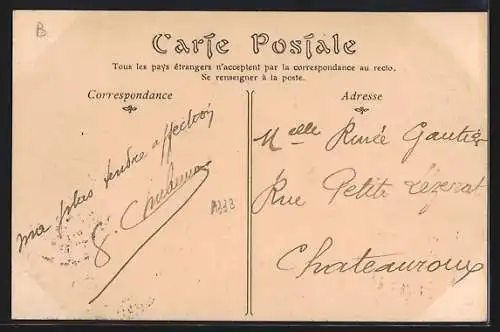 B
Carte Postale
Tous les pays étrangers n'acceptent par la correspondance au recto.
Se renseigner à la poste.
Correspondance
Adresse
ma plus tendre affection
A333
Melle Renée Gautier
Rue Petite Lézerat
Chateauroux